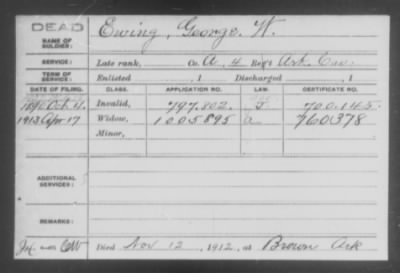 DEAD
NAME OF SOLDIER: Ewing, George W.
SERVICE: Late rank, Co. A, 4 Reg't Ark. Cav.
TERM OF SERVICE: Enlisted , 1 Discharged , 1
DATE OF FILING. CLASS. APPLICATION NO. LAW. CERTIFICATE NO.
1890 Oct 4. Invalid, 797.802. 700.145.
1913 Apr 17 Widow, 1005895 a 760378
Minor,
ADDITIONAL SERVICES:
REMARKS:
Died Nov 12, 1912, at Brown Ark